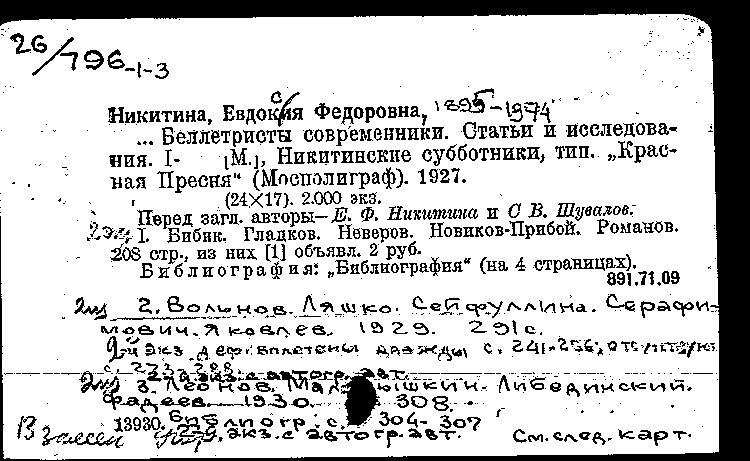 26/796-1-3
Никитина, Евдоксия Федоровна, 1895-1974
... Беллетристы современники. Статьи и исследова-
ния. I- [М.], Никитинские субботники, тип. „Крас-
ная Пресня“ (Мосполиграф). 1927.
(24X17). 2.000 экз.
Перед загл. авторы— Е. Ф. Никитина и С В. Шувалов.
2экз I. Бибик. Гладков. Неверов. Новиков-Прибой. Романов.
208 стр., из них [1] объявл. 2 руб.
Библиография: „Библиография“ (на 4 страницах).
891.71.09
2. Вольнов. Ляшко. Сейфуллина. Серафи-
мович. Яковлев. 1929. 291с.
2й экз. деф: вплетены дважды с. 241-256, отсутствуют
с. 273-288
2й экз. с автогр. авт.
3. Леонов. Малышкин. Либединский.
Фадеев. 1930. 308.
Библиогр.: с. 304-307
13930.
экз. с автогр. авт. См. след. карт.